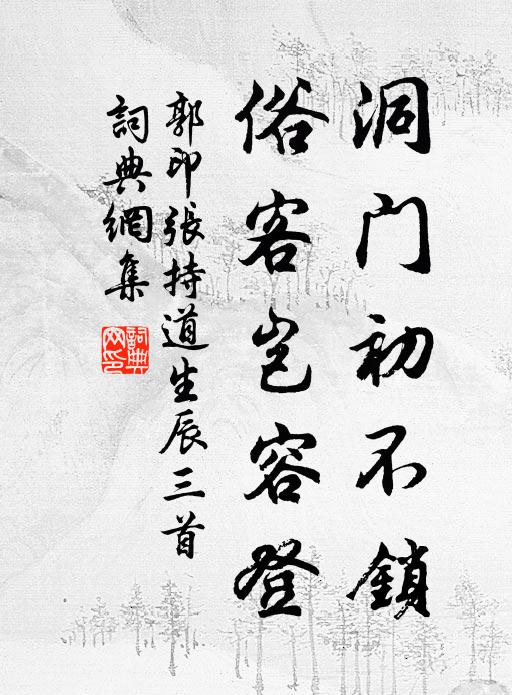 洞门初不鎖
俗客岂容登
郭印張持道生辰三首
詞典網集
詞典网印